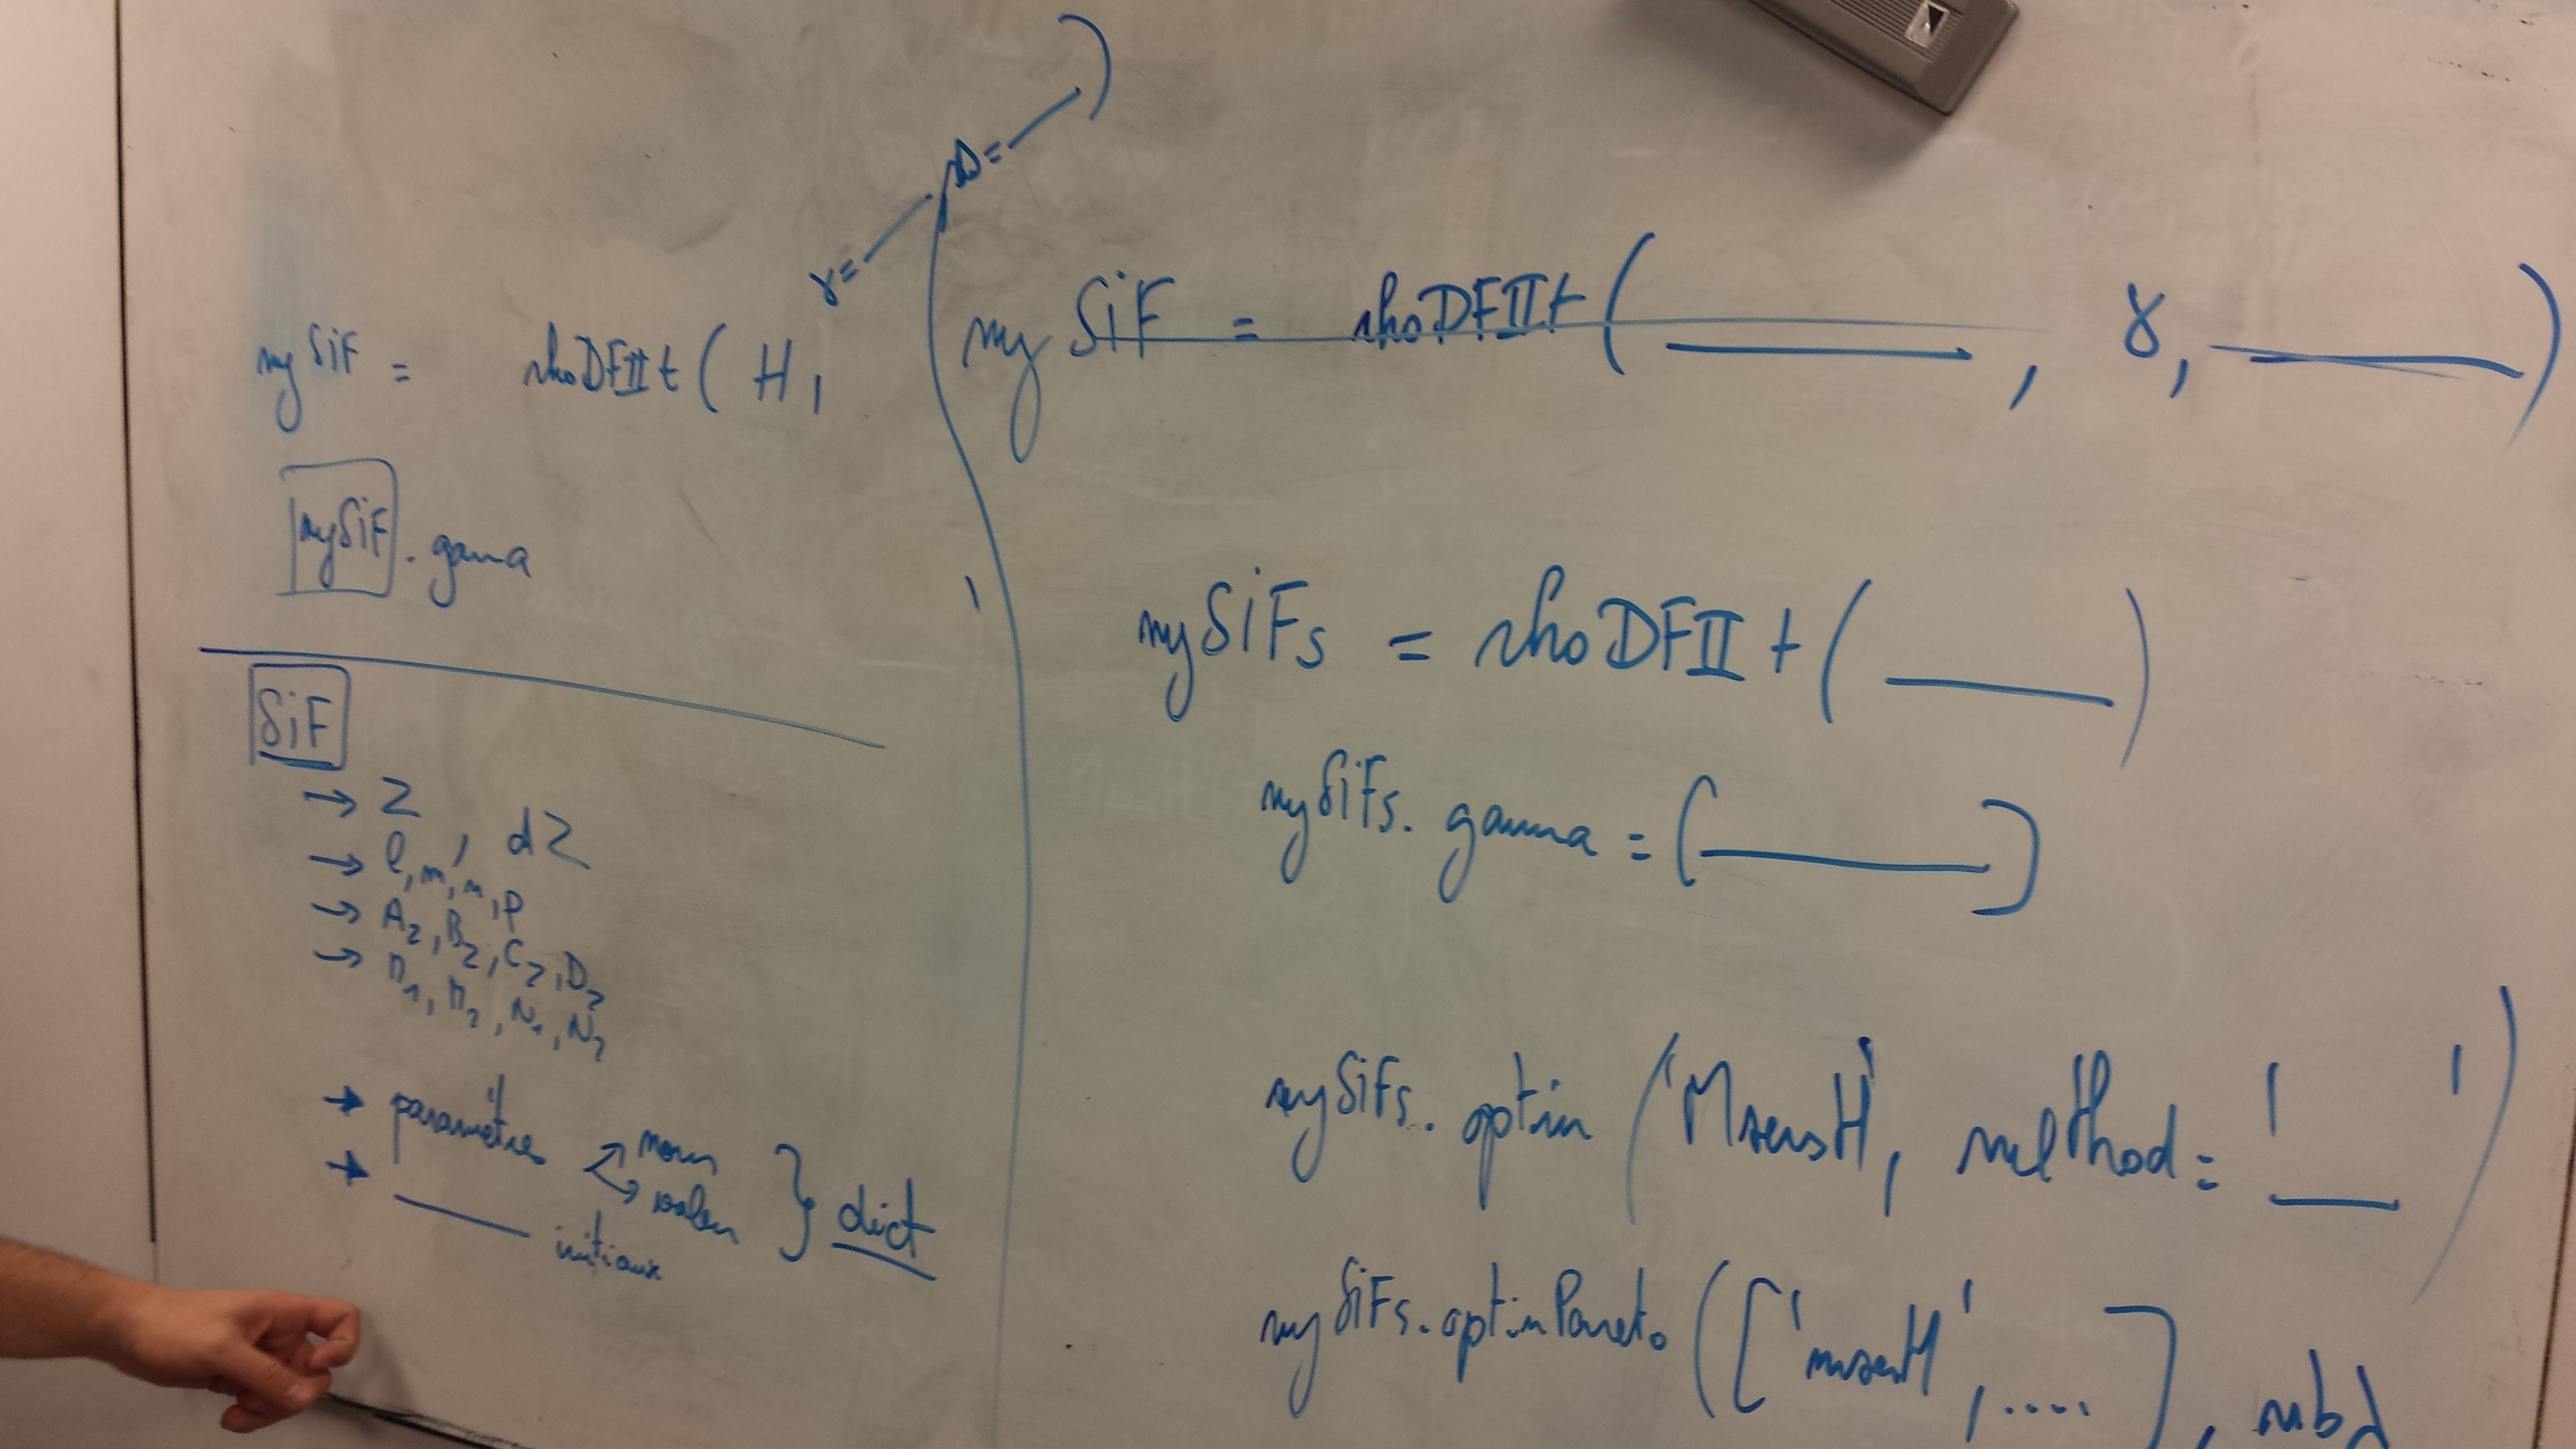 mySiF = rhoDFIIt ( H, γ= ___ , Δ= ___ )
mySiF . gama
SiF
→ Z , dZ
→ l, m, n, p
→ Az, Bz, Cz, Dz
→ M1, M2, N1, N2
→ paramètre nom valeur } dict
→ ____ initiaux
mySiF = rhoDFIIt ( ____ , γ, ____ )
mySiFs = rhoDFIIt ( ____ )
mySiFs. gamma = [ ____ ]
mySiFs. optim ('MsensH', method = '__')
mySiFs. optimPareto (['MsensH', ....], nbd